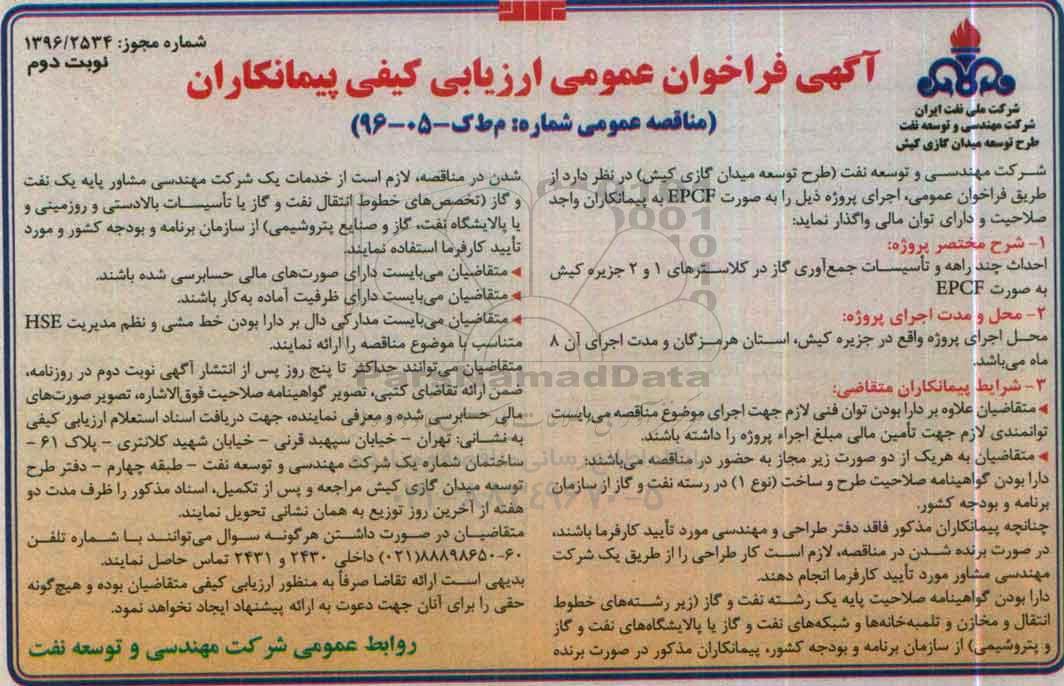 شماره مجوز: ۱۳۹۶/۲۵۳۴
نوبت دوم
آگهی فراخوان عمومی ارزیابی کیفی پیمانکاران
(مناقصه عمومی شماره: م‌ط‌ک-۰۵-۹۶)
شرکت ملی نفت ایران
شرکت مهندسی و توسعه نفت
طرح توسعه میدان گازی کیش
شرکت مهندسی و توسعه نفت (طرح توسعه میدان گازی کیش) در نظر دارد از
طریق فراخوان عمومی، اجرای پروژه ذیل را به صورت EPCF به پیمانکاران واجد
صلاحیت و دارای توان مالی واگذار نماید:
۱- شرح مختصر پروژه:
احداث چند راهه و تأسیسات جمع‌آوری گاز در کلاسترهای ۱ و ۲ جزیره کیش
به صورت EPCF
۲- محل و مدت اجرای پروژه:
محل اجرای پروژه واقع در جزیره کیش، استان هرمزگان و مدت اجرای آن ۸
ماه می‌باشد.
۳- شرایط پیمانکاران متقاضی:
◄ متقاضیان علاوه بر دارا بودن توان فنی لازم جهت اجرای موضوع مناقصه می‌بایست
توانمندی لازم جهت تأمین مالی مبلغ اجراء پروژه را داشته باشند.
◄ متقاضیان به هریک از دو صورت زیر مجاز به حضور در مناقصه می‌باشند:
دارا بودن گواهینامه صلاحیت طرح و ساخت (نوع ۱) در رسته نفت و گاز از سازمان
برنامه و بودجه کشور.
چنانچه پیمانکاران مذکور فاقد دفتر طراحی و مهندسی مورد تأیید کارفرما باشند،
در صورت برنده شدن در مناقصه، لازم است کار طراحی را از طریق یک شرکت
مهندسی مشاور مورد تأیید کارفرما انجام دهند.
دارا بودن گواهینامه صلاحیت پایه یک رشته نفت و گاز (زیر رشته‌های خطوط
انتقال و مخازن و تلمبه‌خانه‌ها و شبکه‌های نفت و گاز یا پالایشگاه‌های نفت و گاز
و پتروشیمی) از سازمان برنامه و بودجه کشور، پیمانکاران مذکور در صورت برنده
شدن در مناقصه، لازم است از خدمات یک شرکت مهندسی مشاور پایه یک نفت
و گاز (تخصص‌های خطوط انتقال نفت و گاز یا تأسیسات بالادستی و روزمینی و
یا پالایشگاه نفت، گاز و صنایع پتروشیمی) از سازمان برنامه و بودجه کشور و مورد
تأیید کارفرما استفاده نمایند.
◄ متقاضیان می‌بایست دارای صورت‌های مالی حسابرسی شده باشند.
◄ متقاضیان می‌بایست دارای ظرفیت آماده به‌کار باشند.
◄ متقاضیان می‌بایست مدارکی دال بر دارا بودن خط مشی و نظم مدیریت HSE
متناسب با موضوع مناقصه را ارائه نمایند.
متقاضیان می‌توانند حداکثر تا پنج روز پس از انتشار آگهی نوبت دوم در روزنامه،
ضمن ارائه تقاضای کتبی، تصویر گواهینامه صلاحیت فوق‌الاشاره، تصویر صورت‌های
مالی حسابرسی شده و معرفی نماینده، جهت دریافت اسناد استعلام ارزیابی کیفی
به نشانی: تهران - خیابان سپهبد قرنی - خیابان شهید کلانتری - پلاک ۶۱ -
ساختمان شماره یک شرکت مهندسی و توسعه نفت - طبقه چهارم - دفتر طرح
توسعه میدان گازی کیش مراجعه و پس از تکمیل، اسناد مذکور را ظرف مدت دو
هفته از آخرین روز توزیع به همان نشانی تحویل نمایند.
متقاضیان در صورت داشتن هرگونه سوال می‌توانند با شماره تلفن
۶۰-۸۸۸۹۸۶۵۰(۰۲۱) داخلی ۲۴۳۰ و ۲۴۳۱ تماس حاصل نمایند.
بدیهی است ارائه تقاضا صرفاً به منظور ارزیابی کیفی متقاضیان بوده و هیچ‌گونه
حقی را برای آنان جهت دعوت به ارائه پیشنهاد ایجاد نخواهد نمود.
روابط عمومی شرکت مهندسی و توسعه نفت